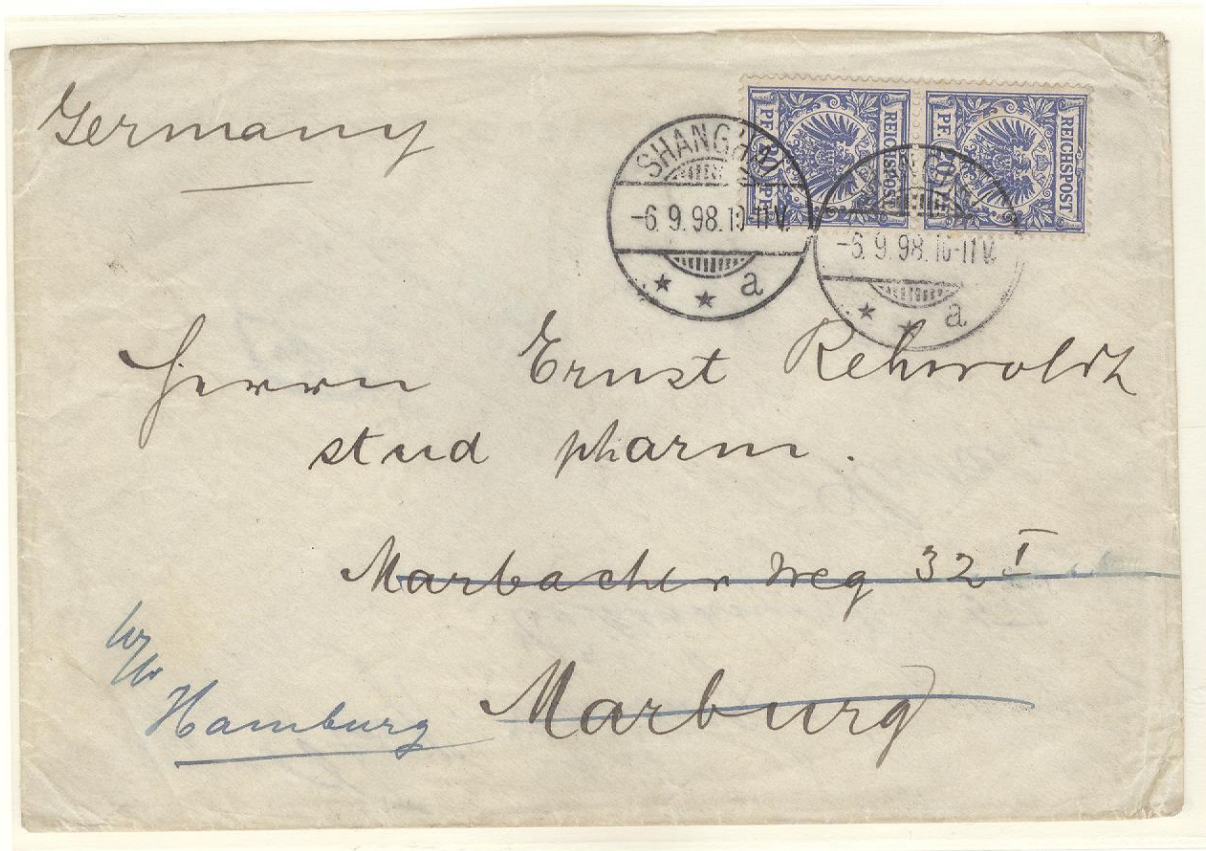 Germany
REICHSPOST
PF. 20 PF.
REICHSPOST
PF. 20 PF.
SHANGHAI
-6.9.98.10-11V.
* * a
-6.9.98.10-11V.
* * a
Herrn Ernst Rehwoldt
stud pharm.
Marbacher Weg 32 I
Marburg
Hamburg